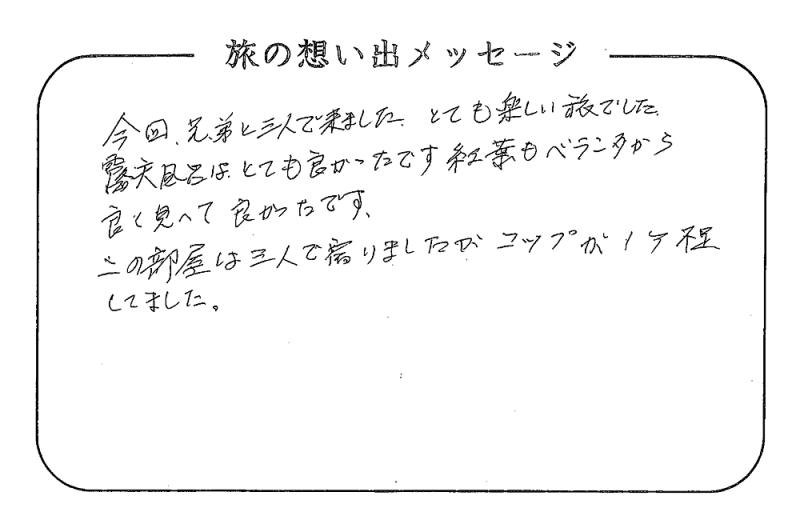 旅の想い出メッセージ
今回、兄弟と三人で来ました。とても楽しい旅でした。
露天風呂は、とても良かったです紅葉もベランダから
良く見へて良かったです、
この部屋は三人で宿りましたがコップが1ケ不足
してました。